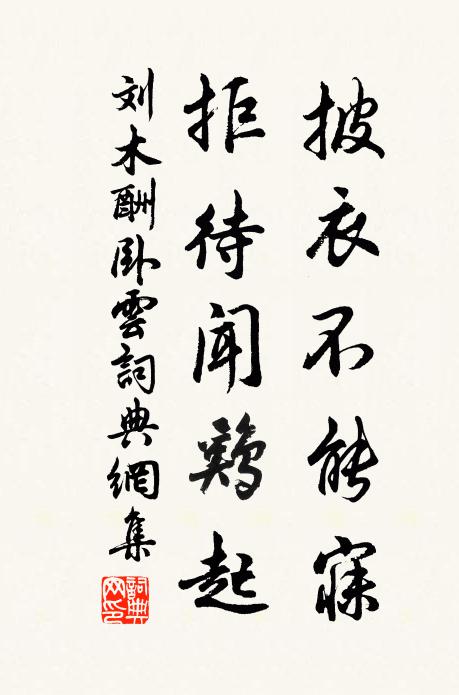 披衣不能寐
拒待闻鷄起
刘木酬卧雲詞典網集
詞典
网印